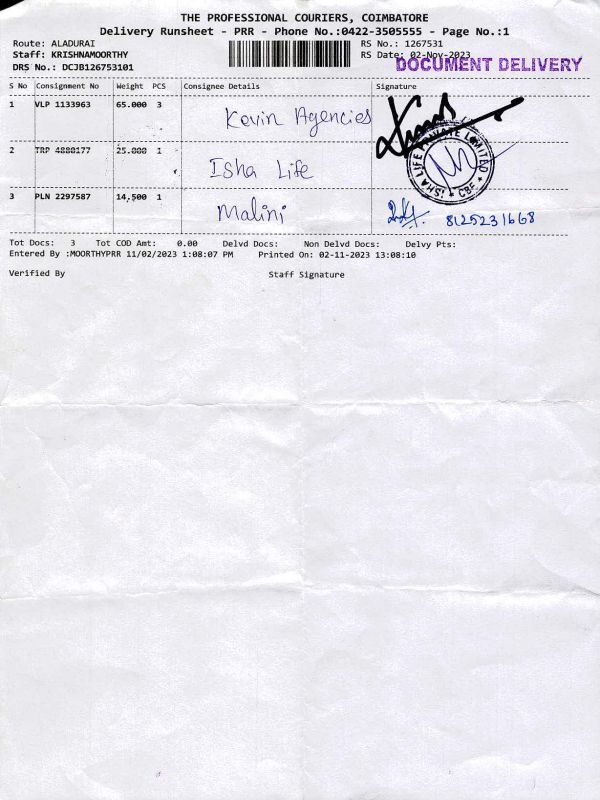 THE PROFESSIONAL COURIERS, COIMBATORE
Delivery Runsheet - PRR - Phone No.:0422-3505555 - Page No.:1
Route: ALADURAI RS No.: 1267531
Staff: KRISHNAMOORTHY RS Date: 02-Nov-2023
DOCUMENT DELIVERY
DRS No.: DCJB126753101
S No Consignment No Weight PCS Consignee Details Signature
1 VLP 1133963 65.000 3 Kevin Agencies
2 TRP 4880177 25.000 1 Isha Life
ISHA LIFE PRIVATE LIMITED * CBE *
3 PLN 2297587 14.500 1 Malini 8125231668
Tot Docs: 3 Tot COD Amt: 0.00 Delvd Docs: Non Delvd Docs: Delvy Pts:
Entered By :MOORTHYPRR 11/02/2023 1:08:07 PM Printed On: 02-11-2023 13:08:10
Verified By Staff Signature